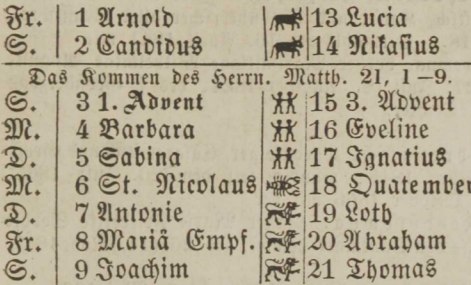 Fr. 1 Arnold 13 Lucia
S. 2 Candidus 14 Nikasius
Das Kommen des Herrn. Matth. 21, 1–9.
S. 3 1. Advent 15 3. Advent
M. 4 Barbara 16 Eveline
D. 5 Sabina 17 Ignatius
M. 6 St. Nicolaus 18 Quatember
D. 7 Antonie 19 Loth
Fr. 8 Mariä Empf. 20 Abraham
S. 9 Joachim 21 Thomas